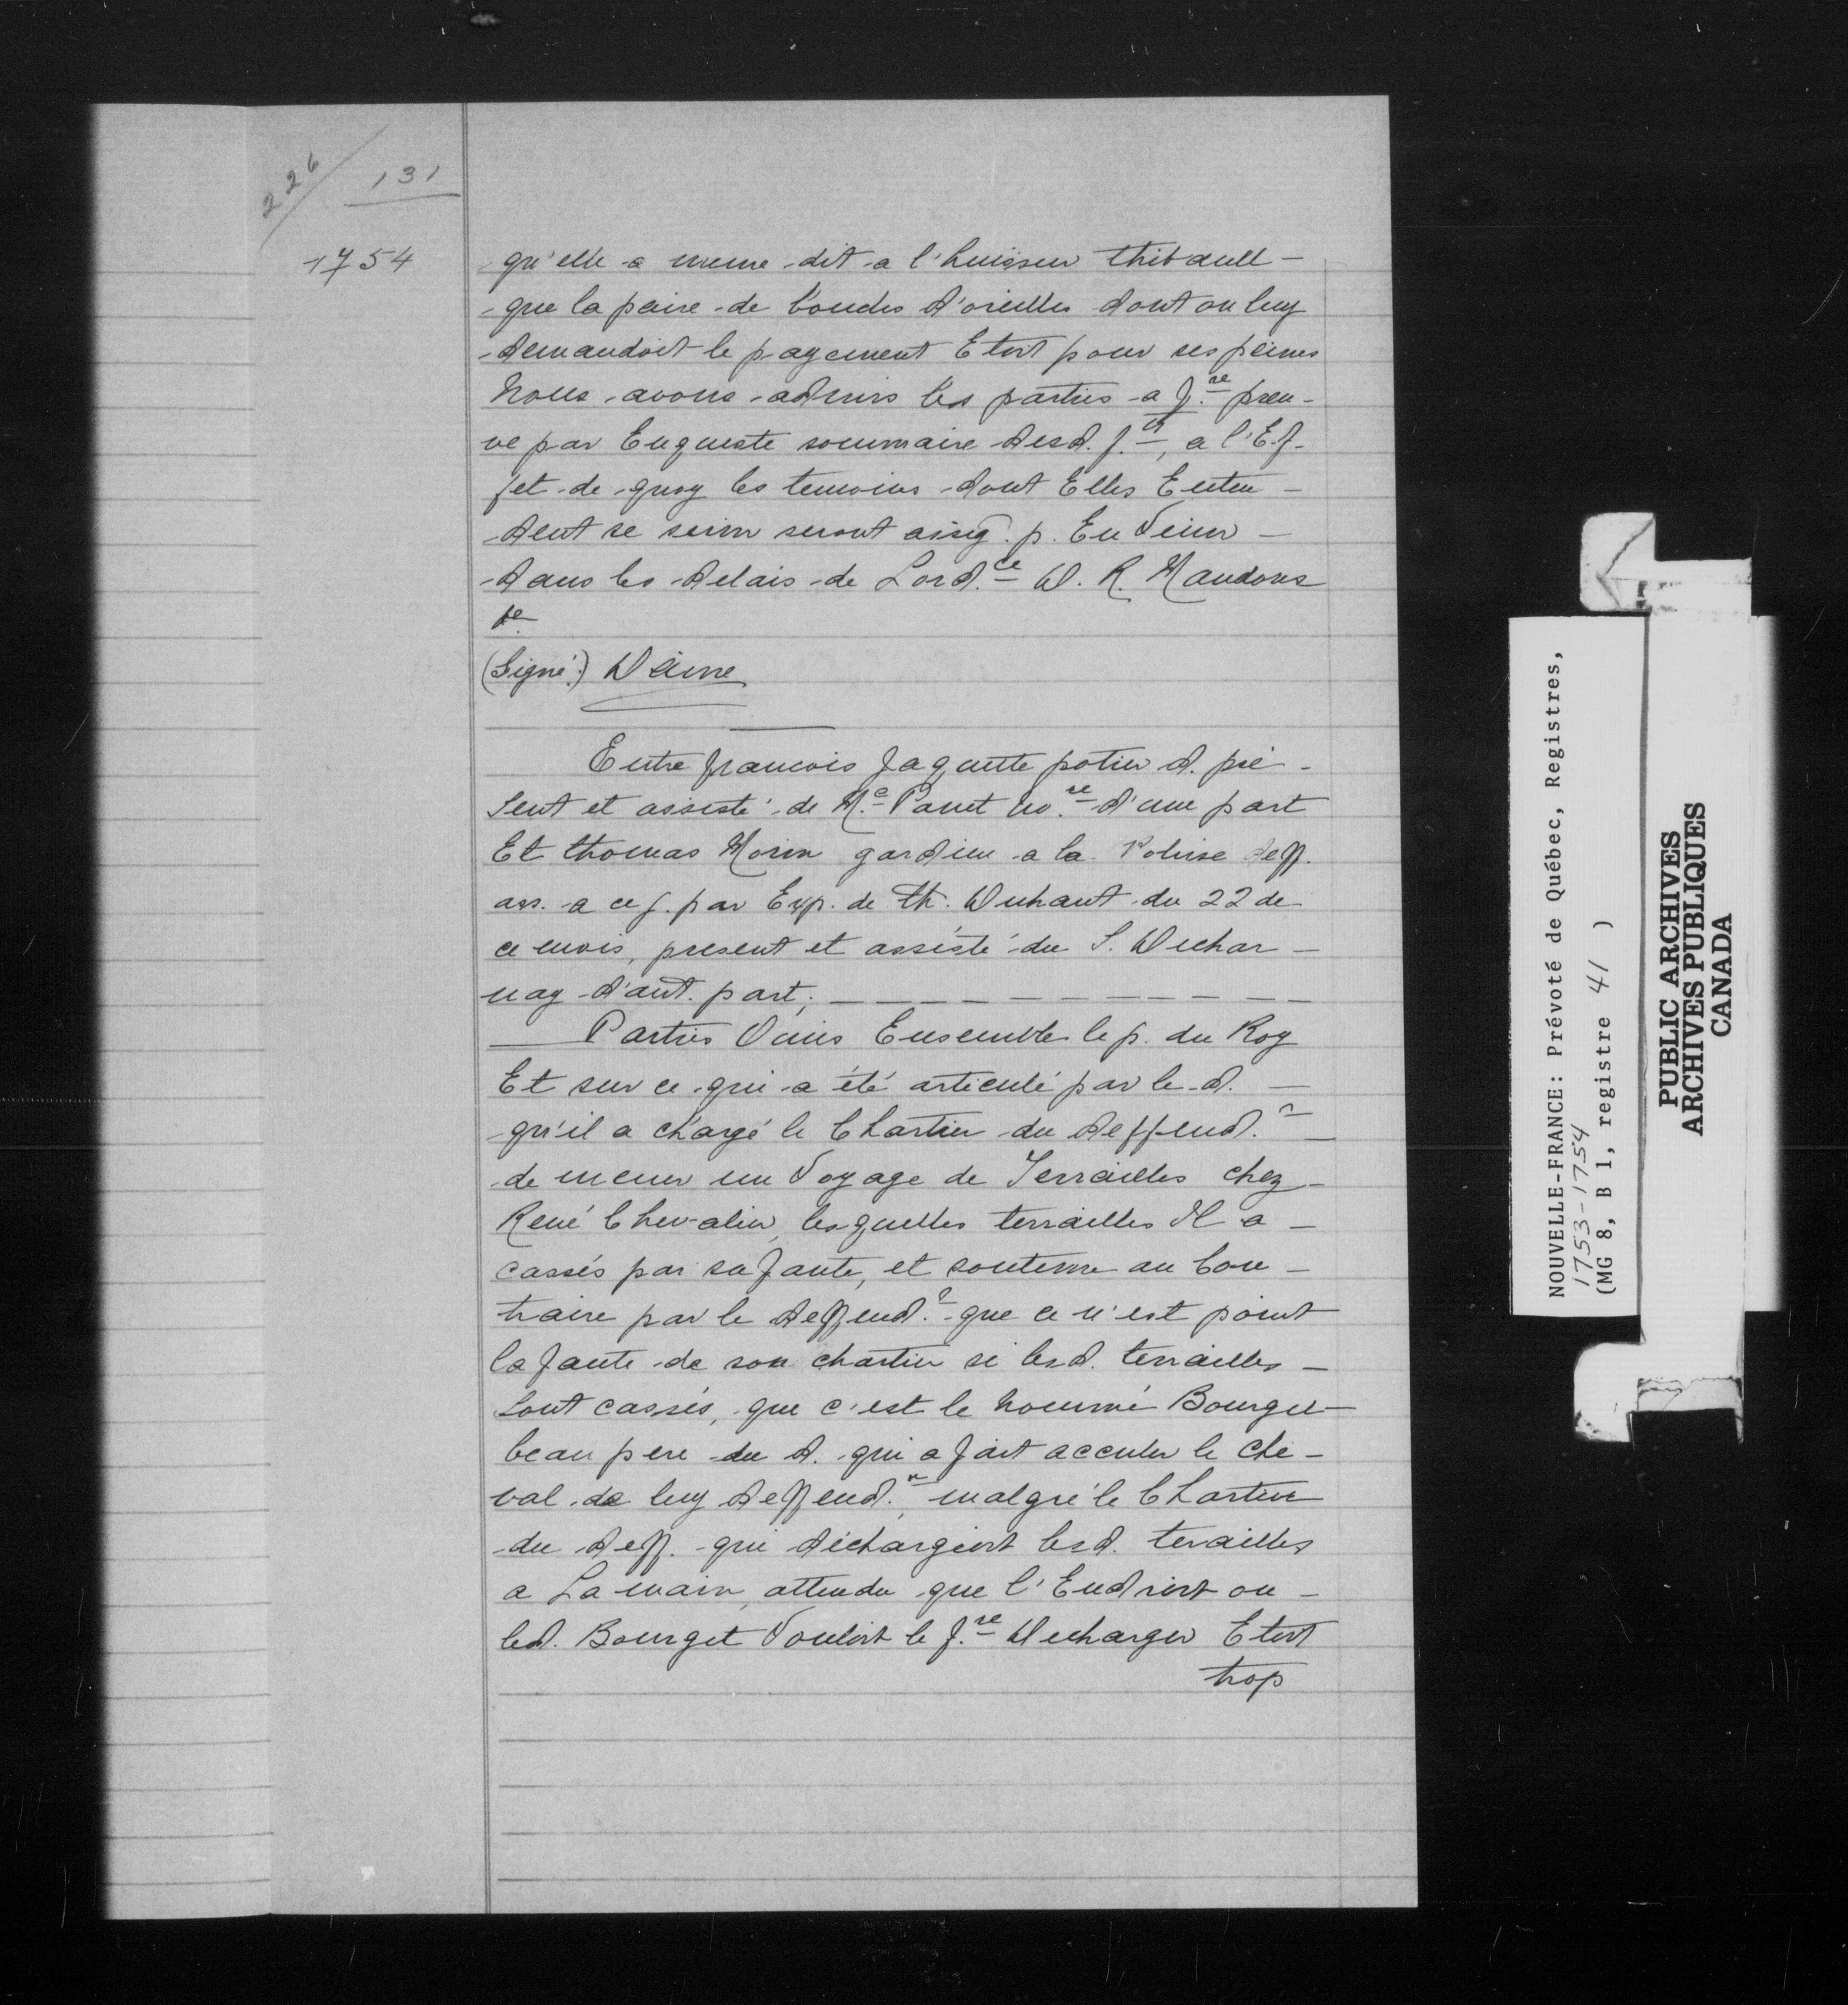 226
131
1754
qu'elle a meme dit a l'huissier thibault -
que la paire de boucles d'oreilles dont on luy
demandoit le payement Etoit pour ses peines
Nous avons admis les parties a f.re preu-
ve par Enqueste sommaire desd. f.ts, a l'Ef-
fet de quoy les temoins dont Elles Enten -
dent se servir seront assig. p. En venir -
dans les delais de Lord.ce D. R. Mandons
&c
(Signé) Daine
Entre francois Jaquette potier d. pré -
sent et assisté de M.e Panet no.re d'une part
Et thomas Morin gardien a la Potasse deff.
ass. a ce j. par Exp. de th. Duhaut du 22 de
ce mois, present et assisté du S. Dechar -
nay d'aut. part;
Parties Ouies Ensemble le p. du Roy
Et sur ce qui a été articulé par le d. -
qu'il a chargé le Chartier du deffend.r -
de mener un Voyage de Terrailles chez -
René Chevalier, lesquelles terrailles Il a -
cassés par sa faute, et soutenu au Con -
traire par le deffend.r que ce n'est point
la faute de son chartier si lesd. terrailles -
sont cassés, que c'est le nommé Bourget -
beau pere du d. qui a fait acculer le che -
val de luy deffend.r, malgré le Chartier
du deff. qui déchargeoit lesd. terailles
a La main, attendu que l'Endroit ou -
led. Bourget Vouloit le f.re decharger Etoit
trop
NOUVELLE-FRANCE: Prévoté de Québec, Registres,
1753-1754
(MG 8, B 1, registre 41 )
PUBLIC ARCHIVES
ARCHIVES PUBLIQUES
CANADA